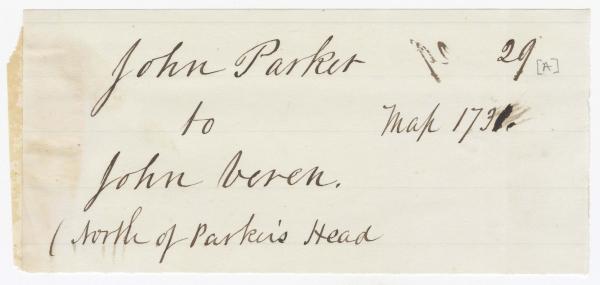 John Parker 29 [A]
to Map 1731.
John Veren.
(North of Parker's Head